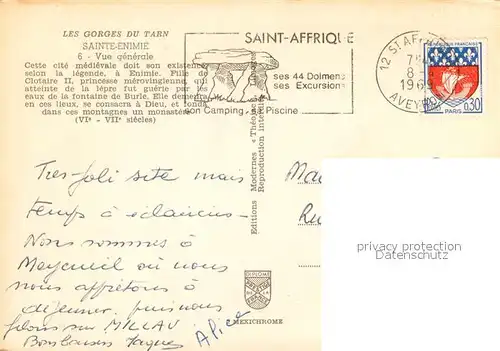 LES GORGES DU TARN
SAINTE-ENIMIE
6 - Vue générale
Cette cité médiévale doit son existence,
selon la légende, à Enimie. Fille de
Clotaire II, princesse mérovingienne, qui
atteinte de la lèpre fut guérie par les
eaux de la fontaine de Burle. Elle demeura
en ces lieux, se consacra à Dieu, et fonda
dans ces montagnes un monastère
(VIᵉ - VIIᵉ siècles)
SAINT-AFFRIQUE
ses 44 Dolmens
ses Excursions
son Camping - sa Piscine
12 ST AFFRIQUE
8
1969
AVEYRON
REPUBLIQUE FRANÇAISE
PARIS
0,30
Editions Modernes « Théojac
Reproduction interdite
DIPLOME
PRESTIGE
MEXICHROME
Très joli site mais
Temps à éclaircies -
Nous sommes à
Meyrueil où nous
nous apprêtons à
déjeuner, puis nous
filons sur MILLAU
Bons baisers Jaques
Alice
privacy protection
Datenschutz